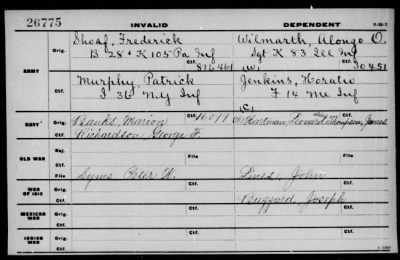 26775 INVALID DEPENDENT
ARMY
Orig. Shoaf, Frederick Wilmarth, Alonzo O.
B 28 & K 105 Pa Inf Sgt K 83 Ill Inf
Ctf. 816461 (W) 30451
Orig. Murphy, Patrick Jenkins, Horatio
I 36 N.Y Inf F 14 Me Inf
Ctf. (C)
NAVY
Orig. Banks, Marion Ctf. 16011 Hartman, Leonard alias Thompson, James
Richardson, George F. Ctf.
OLD WAR
Rej.
Ctf. File File
WAR OF 1812
Orig. Syms, Peter W. Lines, John
Ctf. Buzzard, Joseph
MEXICAN WAR
Orig. Ctf.
INDIAN WAR
Orig. Ctf.